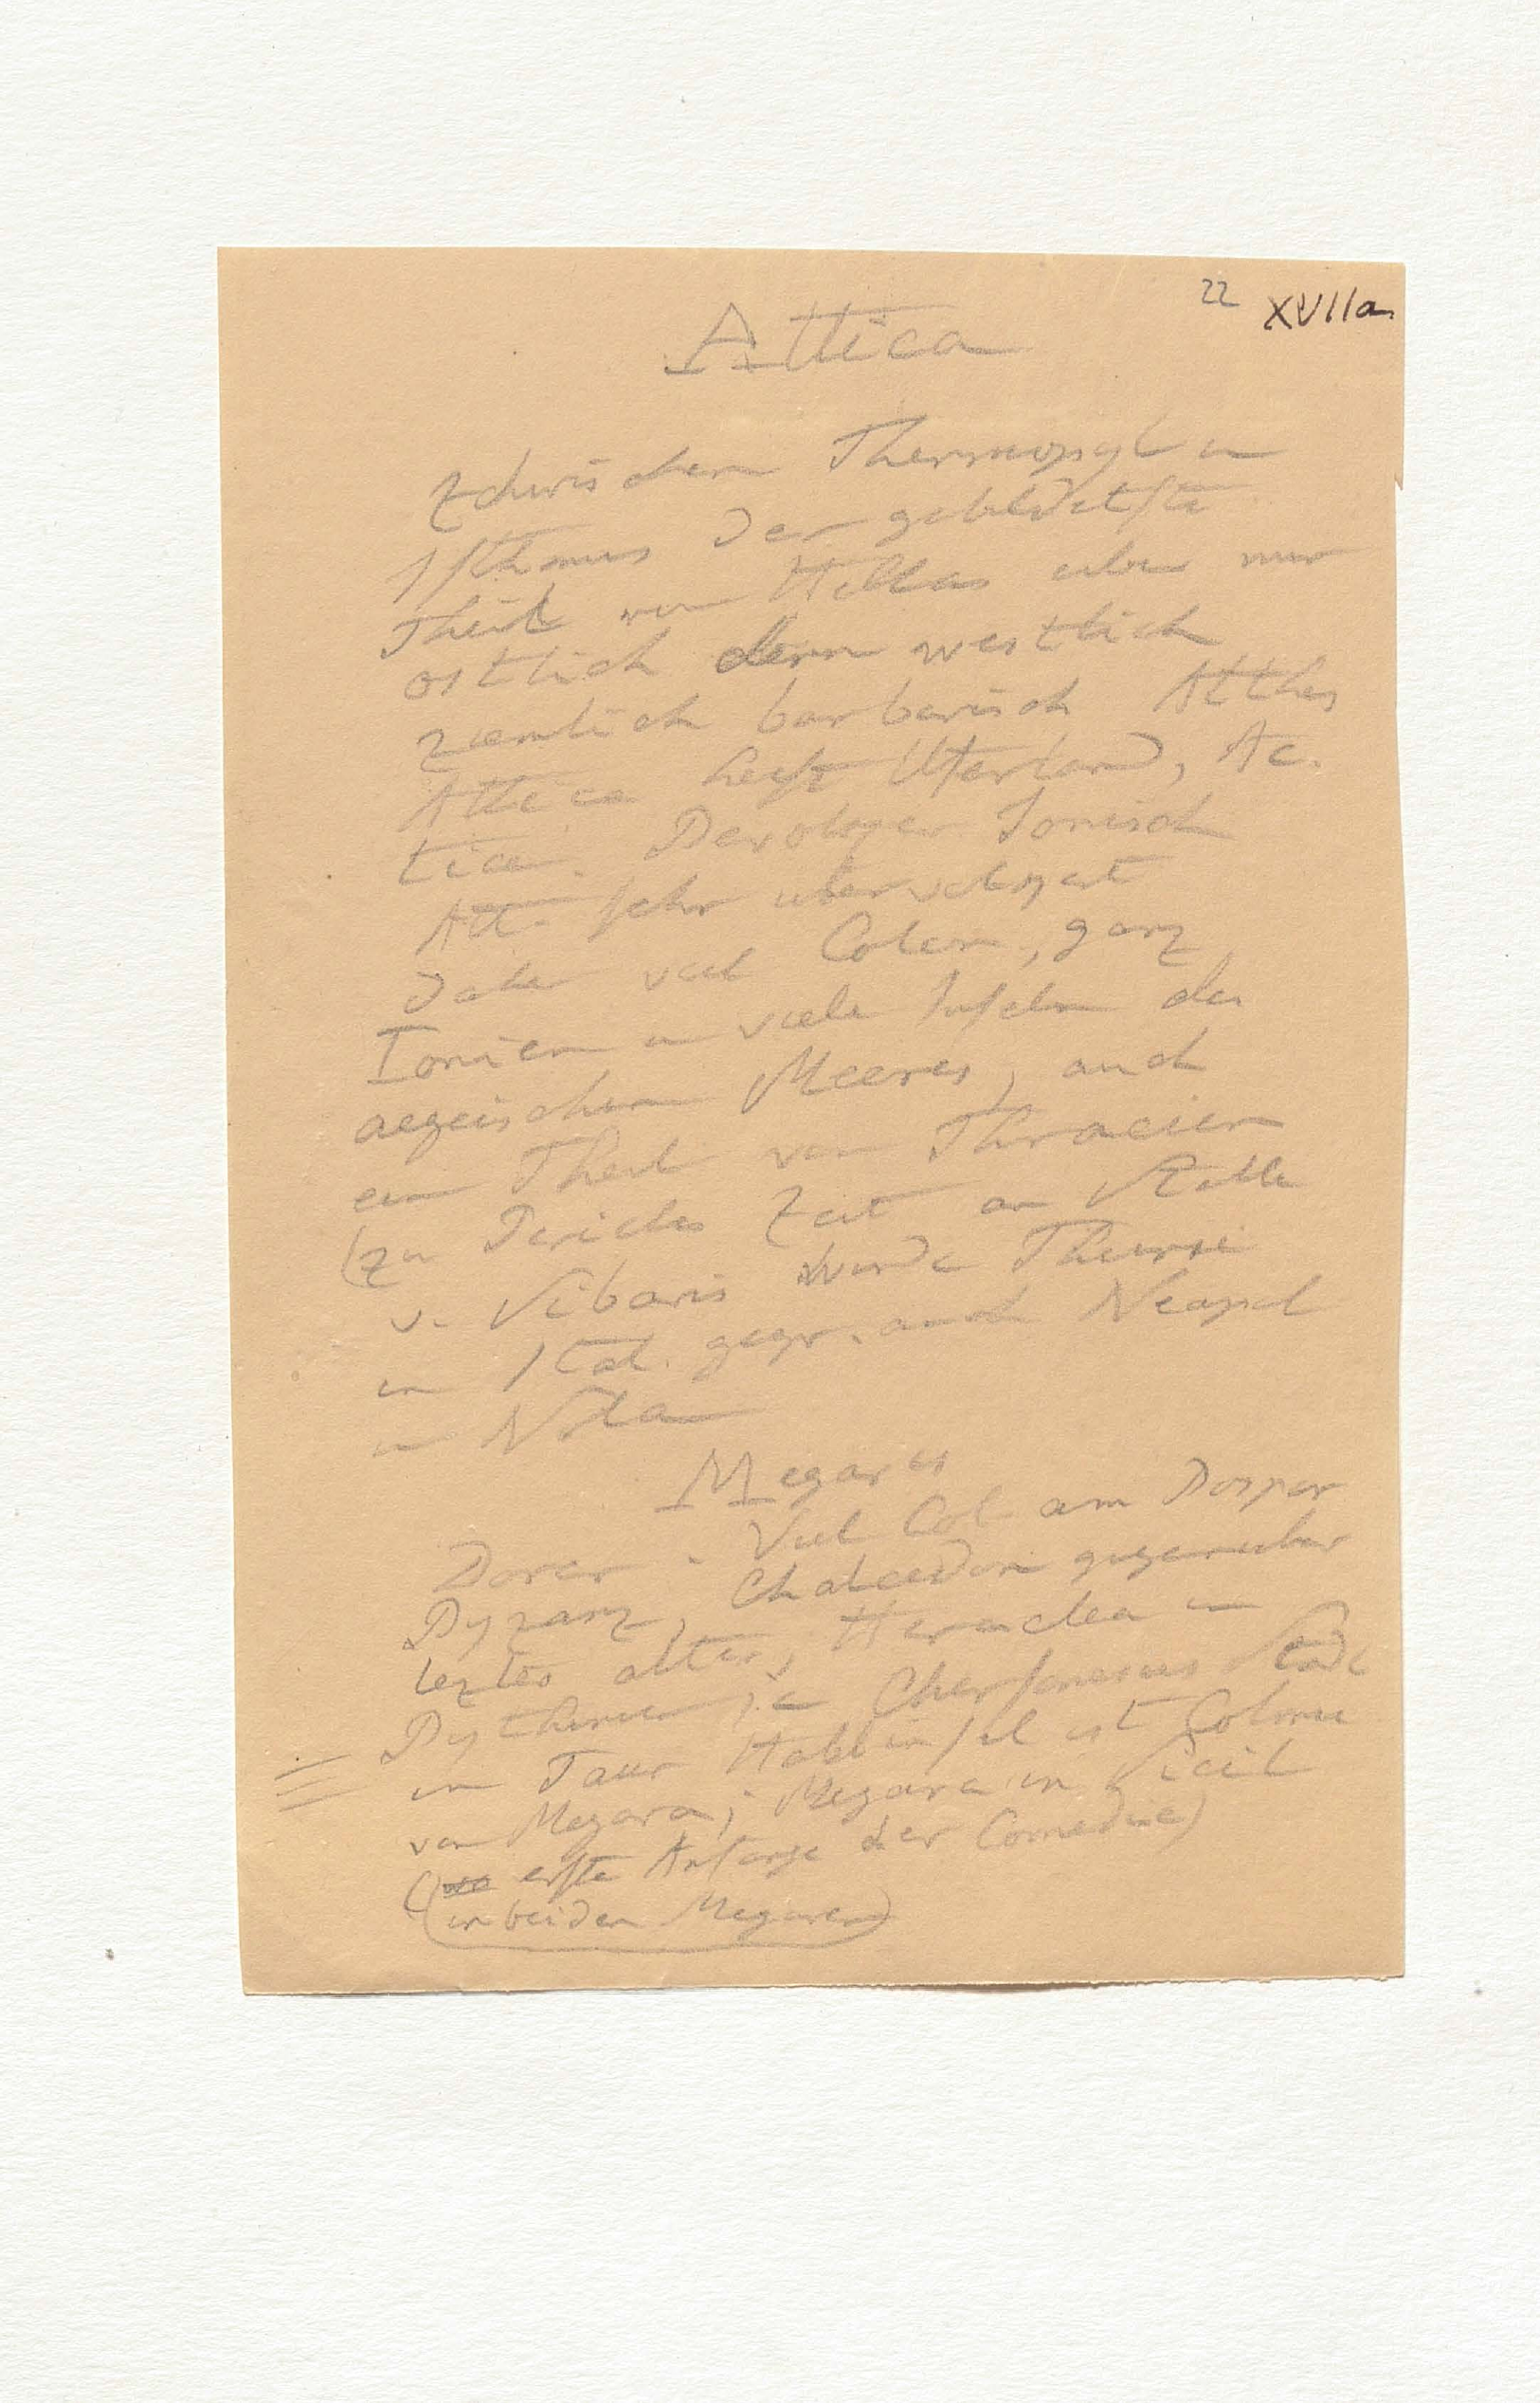 22 XVIIa
Attica
Zchwischen Thermopyl u
Isthmus der gebildetste
Theil von Hellas aber nur
ostlich denn westlich
ziemlich barbarisch Atthis
Attica heist Uferland, Ac.
tica. Bevolger Ionisch
Att. sehr ubervolgert
daher viel Colen, ganz
Ionien u viele Inseln des
aegeischen Meeres, auch
ein Theil von Thracien
(zu Pericles Zeit an Stelle
v. Sibaris wurde Thurii
in Ital. gegr. auch Neapel
u Nola
Megaris
Dorer. Viel Col am Bospor
Byzanz, Chalcedon gegenuber
leztes alter, Heraclea in
Bythinien, Chersonesus Stadt
in Taur Halbinsel ist Colonie
von Megara; Megara in Sicil
(wo erste Anfange der Comedie)
(in beiden Megaren)